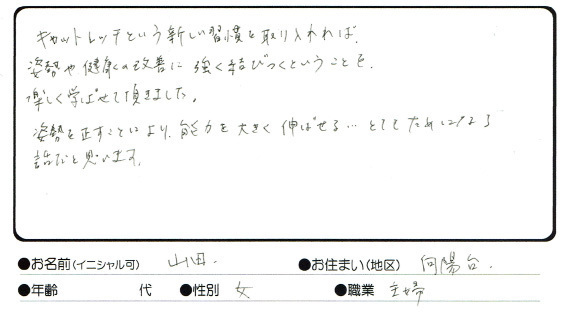 キャットレッチという新しい習慣を取り入れれば、
姿勢や健康の改善に強く結びつくということを、
楽しく学ばせて頂きました。
姿勢を正すことにより、能力を大きく伸ばせる…とてもためになる
話だと思います。
●お名前(イニシャル可) 山田. ●お住まい(地区) 向陽台.
●年齢 代 ●性別 女 ●職業 主婦